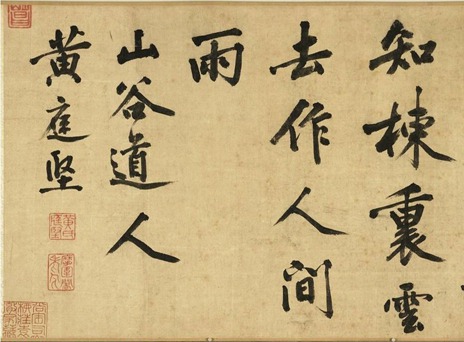 知棟裏雲
去作人間
雨
山谷道人
黄庭堅